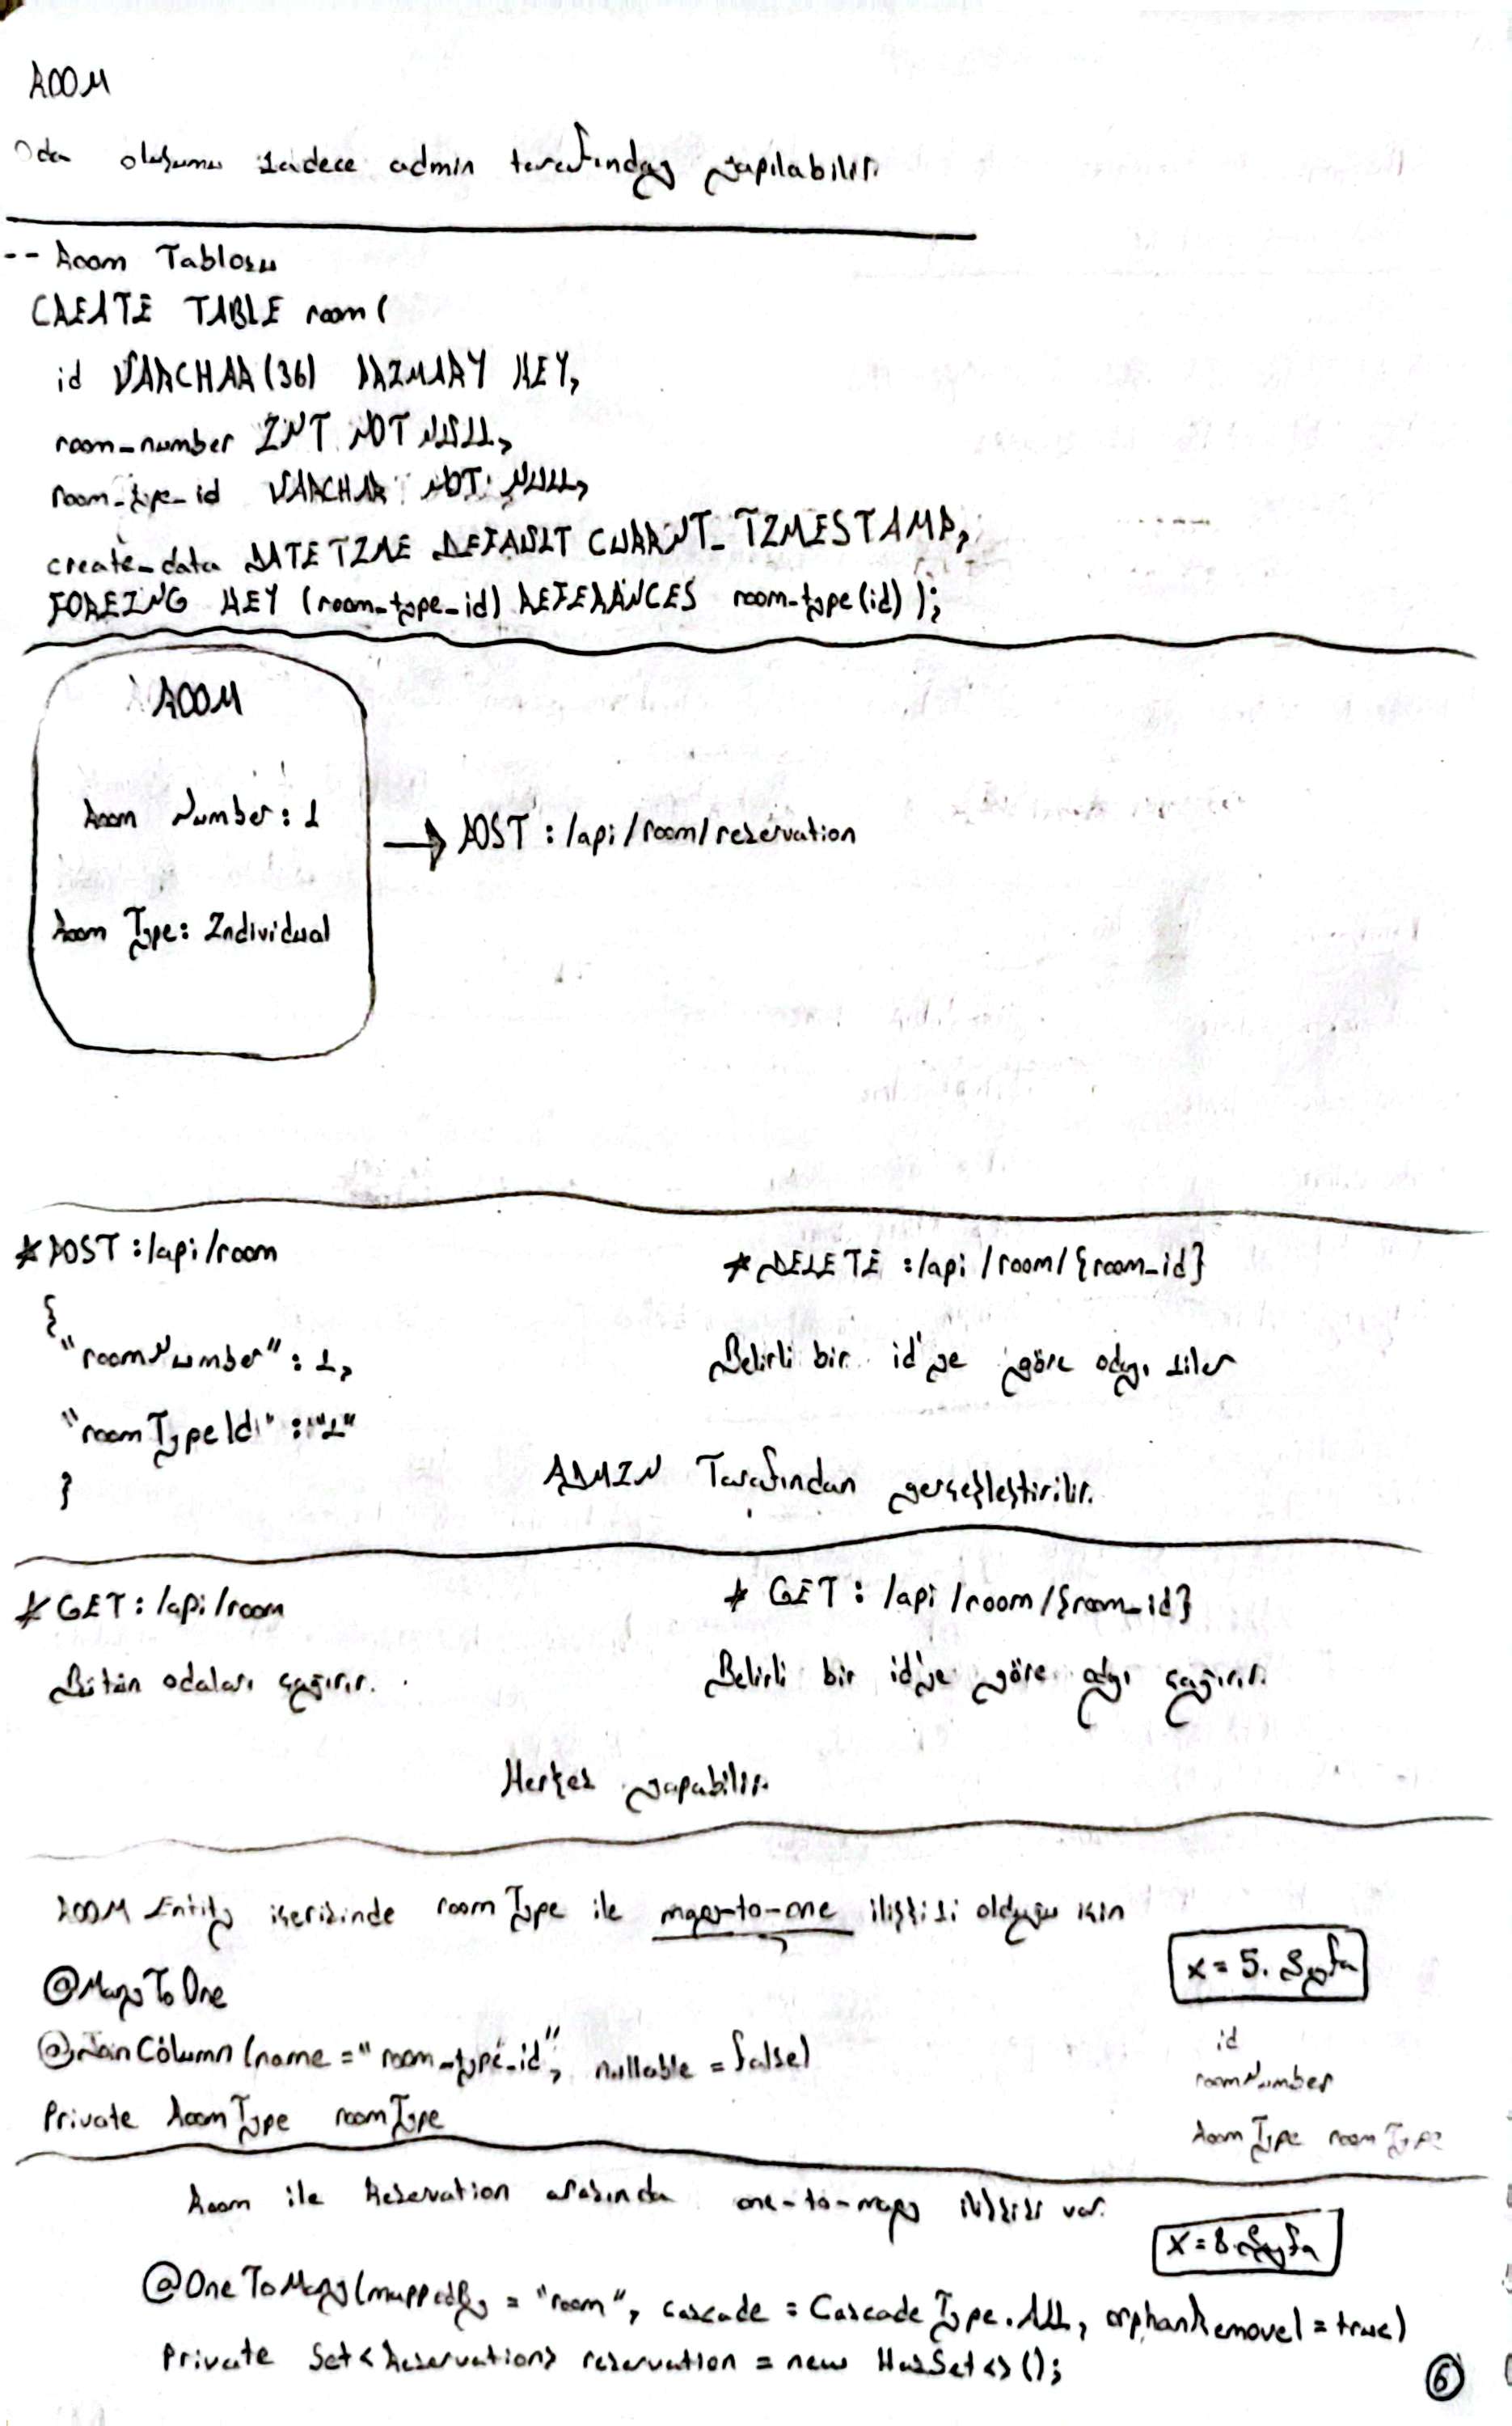 ROOM
Oda oluşumu sadece admin tarafından yapılabilir.
-- Room Tablosu
CREATE TABLE room(
id VARCHAR(36) PRIMARY KEY,
room_number INT NOT NULL,
room_type_id VARCHAR NOT NULL,
create_data DATETIME DEFAULT CURRNT_TIMESTAMP,
FOREING KEY (room_type_id) REFERANCES room_type(id) );
ROOM
Room Number: 1
Room Type: Individual
→ POST : /api/room/reservation
* POST : /api/room
{
"roomNumber" : 1,
"roomTypeId" : "1"
}
* DELETE : /api/room/{room_id}
Belirli bir id'ye göre odayı siler
ADMIN Tarafından gerçekleştirilir.
* GET : /api/room
Bütün odaları çağırır.
* GET : /api/room/{room_id}
Belirli bir id'ye göre odayı çağırır.
Herkes yapabilir.
ROOM Entity içerisinde roomType ile many-to-one ilişkisi olduğu için
@ManyToOne
@JoinColumn(name = "room_type_id", nullable = false)
Private RoomType roomType
x = 5. Sayfa
id
roomNumber
RoomType roomType
Room ile Reservation arasında one-to-many ilişkisi var.
x = 8. Sayfa
@OneToMany(mappedBy = "room", cascade = CascadeType.ALL, orphanRemoval = true)
Private Set<Reservation> reservation = new HasSet<>();
6